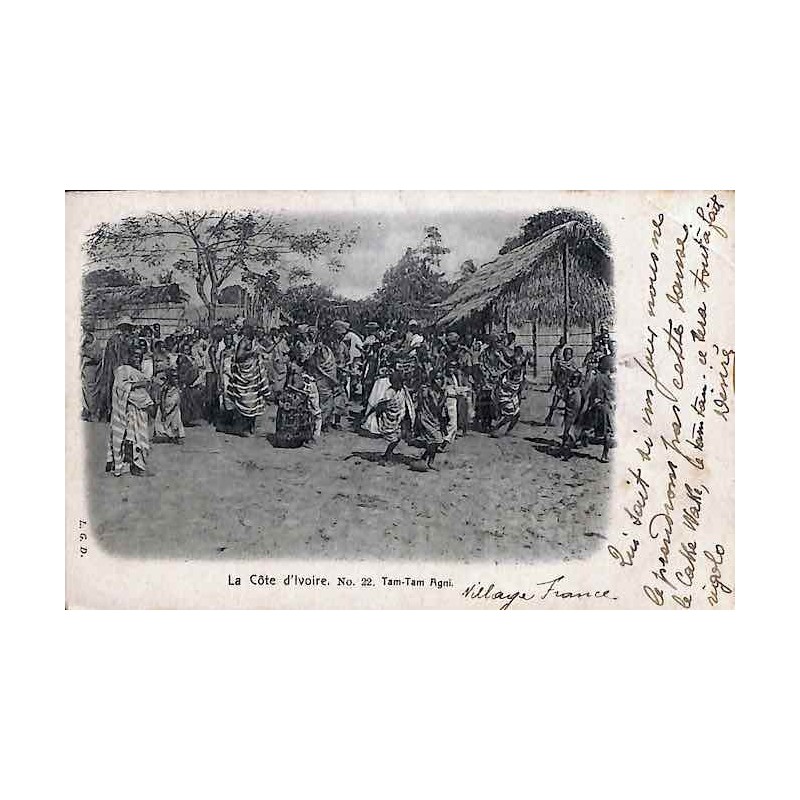 La Côte d'Ivoire. No. 22. Tam-Tam Agni.
Village France.
L. G. D.
Qui sait si un jour nous ne
le prendrons pas cette danse.
le Cake Wake, le tamtam. ce sera tout à fait
rigolo Désiré